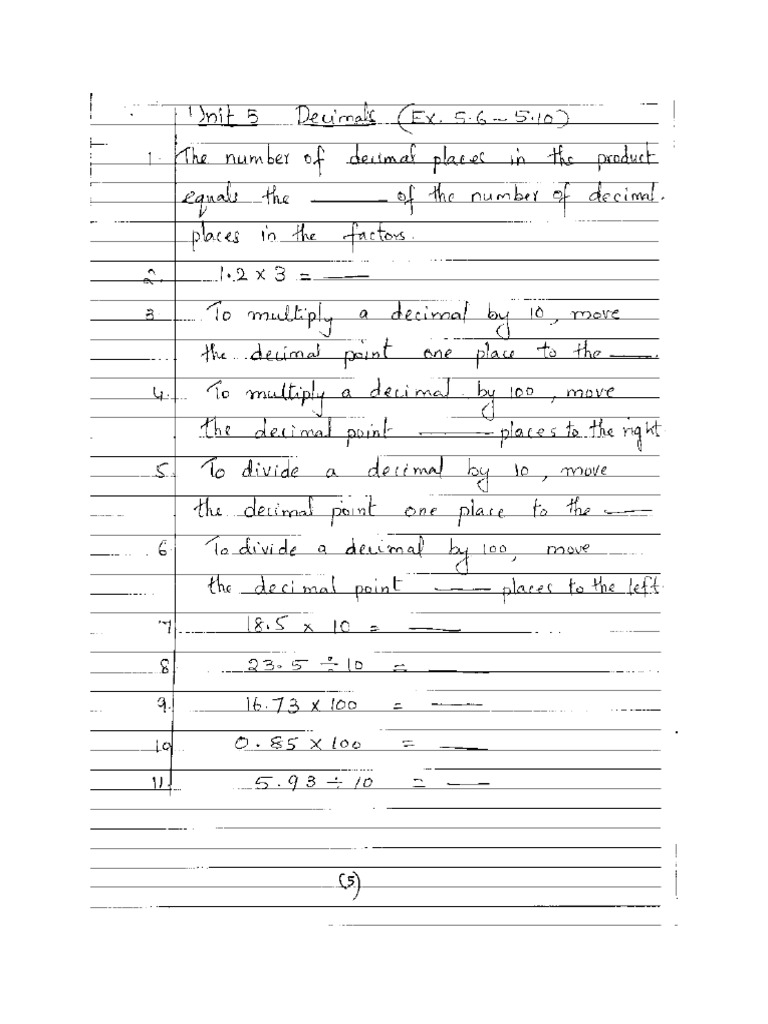 Unit 5 Decimals (Ex. 5.6 - 5.10)
1. The number of decimal places in the product
equals the ______ of the number of decimal
places in the factors.
2. 1.2 x 3 = ____
3 To multiply a decimal by 10, move
the decimal point one place to the ____.
4. To multiply a decimal by 100, move
the decimal point ______ places to the right
5. To divide a decimal by 10, move
the decimal point one place to the ____
6. To divide a decimal by 100, move
the decimal point _____ places to the left.
7 18.5 x 10 = ____
8 23.5 ÷ 10 = ____
9. 16.73 x 100 = ____
10 0.85 x 100 = ____
11. 5.93 ÷ 10 = ____
(5)